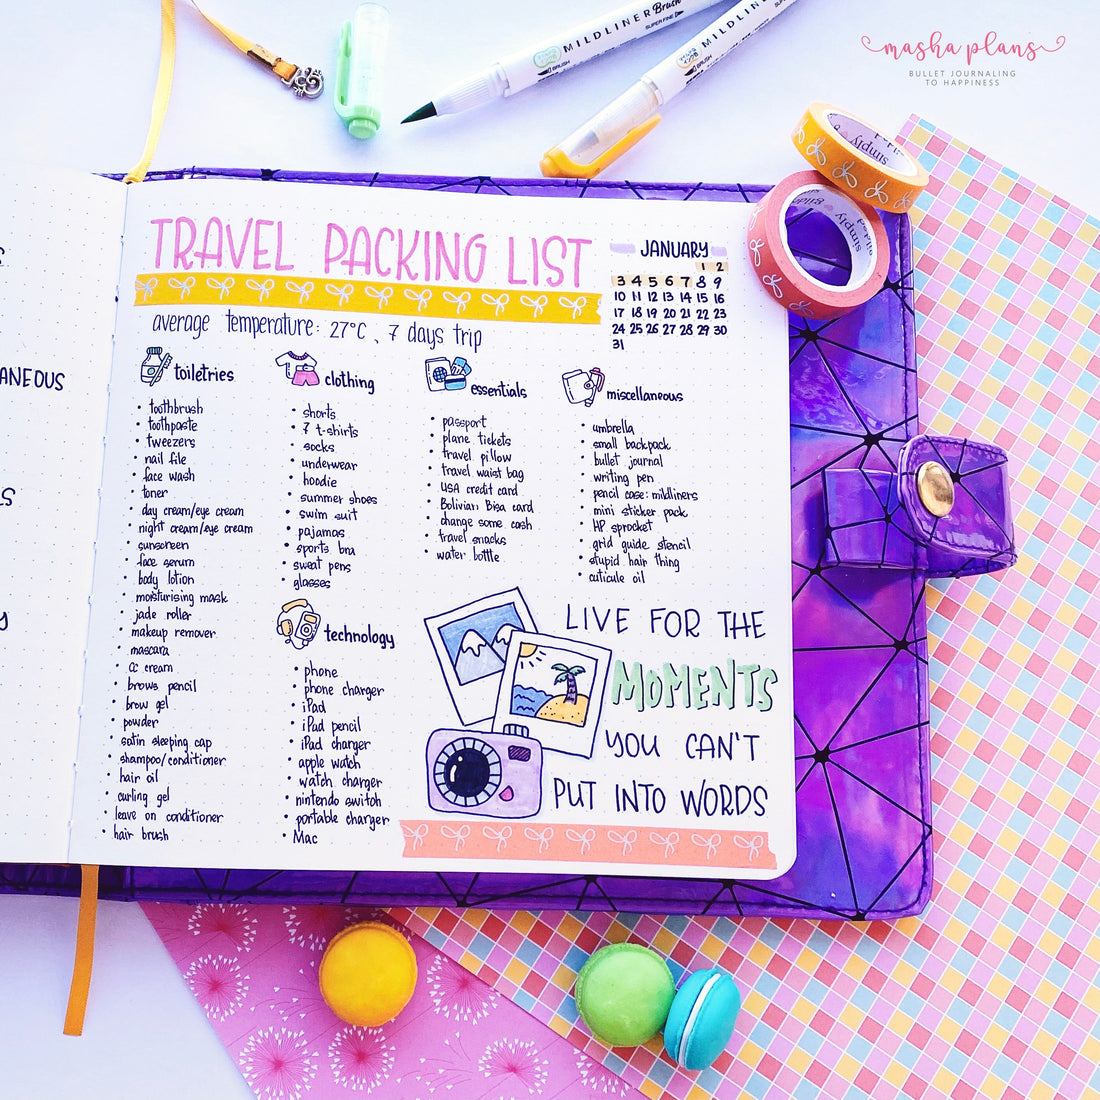 MILDLINER Brush
SUPER FINE
BRUSH
MILDLINER
BRUSH
masha plans
BULLET JOURNALING
TO HAPPINESS
simply
simply
gilded
ANEOUS
TRAVEL PACKING LIST
average temperature: 27°C, 7 days trip
JANUARY
1 2
3 4 5 6 7 8 9
10 11 12 13 14 15 16
17 18 19 20 21 22 23
24 25 26 27 28 29 30
31
toiletries
• toothbrush
• toothpaste
• tweezers
• nail file
• face wash
• toner
• day cream/eye cream
• night cream/eye cream
• sunscreen
• face serum
• body lotion
• moisturising mask
• jade roller
• makeup remover
• mascara
• cc cream
• brows pencil
• brow gel
• powder
• satin sleeping cap
• shampoo/conditioner
• hair oil
• curling gel
• leave on conditioner
• hair brush
clothing
• shorts
• 7 t-shirts
• socks
• underwear
• hoodie
• summer shoes
• swim suit
• pajamas
• sports bra
• sweat pens
• glasses
technology
• phone
• phone charger
• iPad
• iPad pencil
• iPad charger
• apple watch
• watch charger
• nintendo switch
• portable charger
• Mac
essentials
• passport
• plane tickets
• travel pillow
• travel waist bag
• USA credit card
• Bolivian Bisa card
• change some cash
• travel snacks
• water bottle
miscellaneous
• umbrella
• small backpack
• bullet journal
• writing pen
• pencil case: mildliners
• mini sticker pack
• HP sprocket
• grid guide stencil
• stupid hair thing
• cuticule oil
LIVE FOR THE
MOMENTS
YOU CAN'T
PUT INTO WORDS